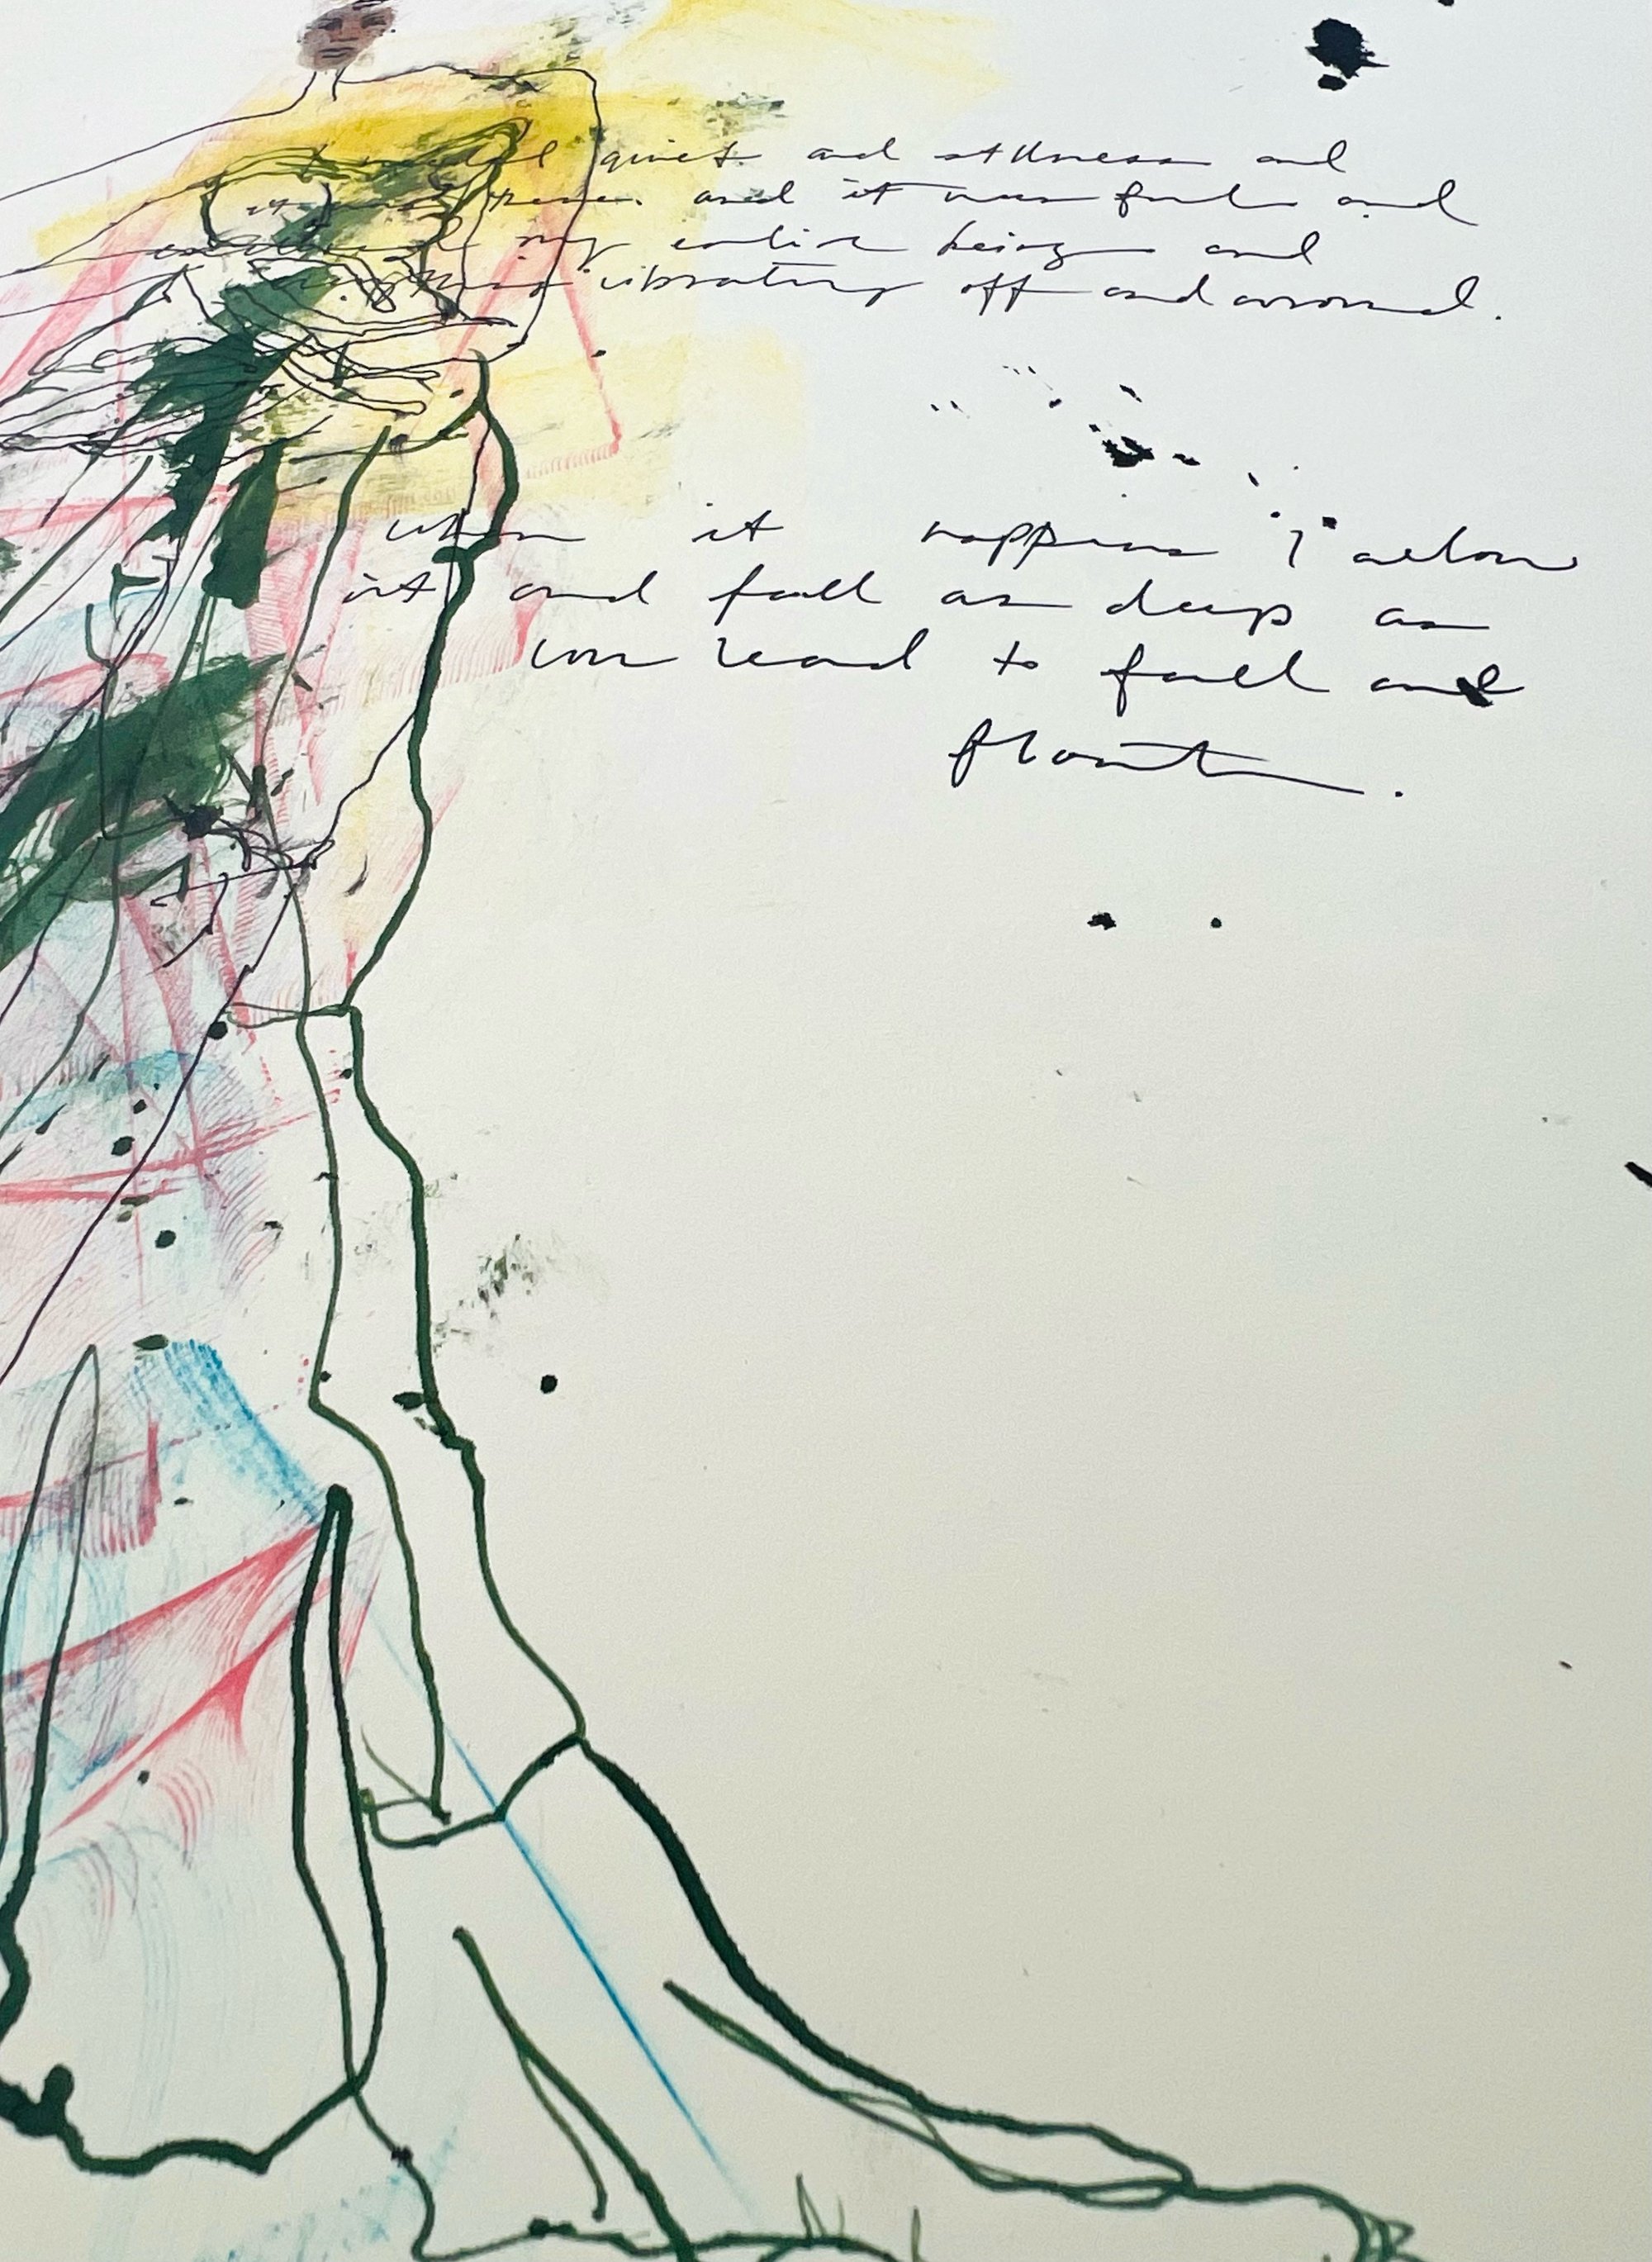 I needed quiet and stillness and
it was there. and it was full and
my entire being and
vibrating off and around.
when it happens I allow
it and fall as deep as
we need to fall and
float.